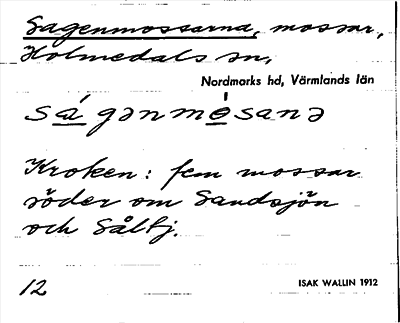 Sagenmossarna, mossar,
Holmedals sn,
Nordmarks hd, Värmlands län
sá gənmósanə
Kroken: fem mossar
söder om Sandsjön
och Såltj.
12
ISAK WALLIN 1912